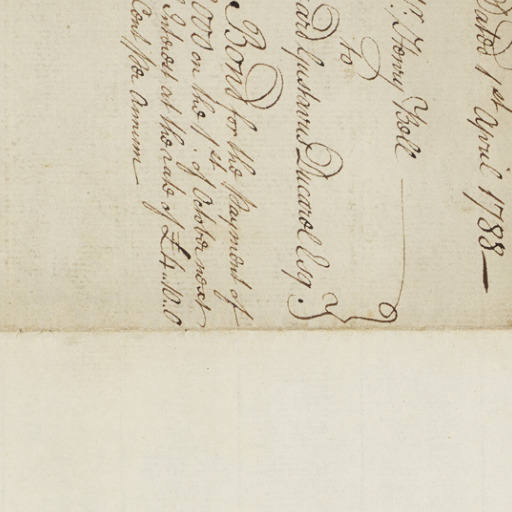 Dated 1st April 1788
Mr. Henry Bell
to
ard Gustavus Ducarel Esq.
Bond for the Payment of
000 on the 1st. of October next
Interest at the rate of £4..10..0
Cent Per Annum